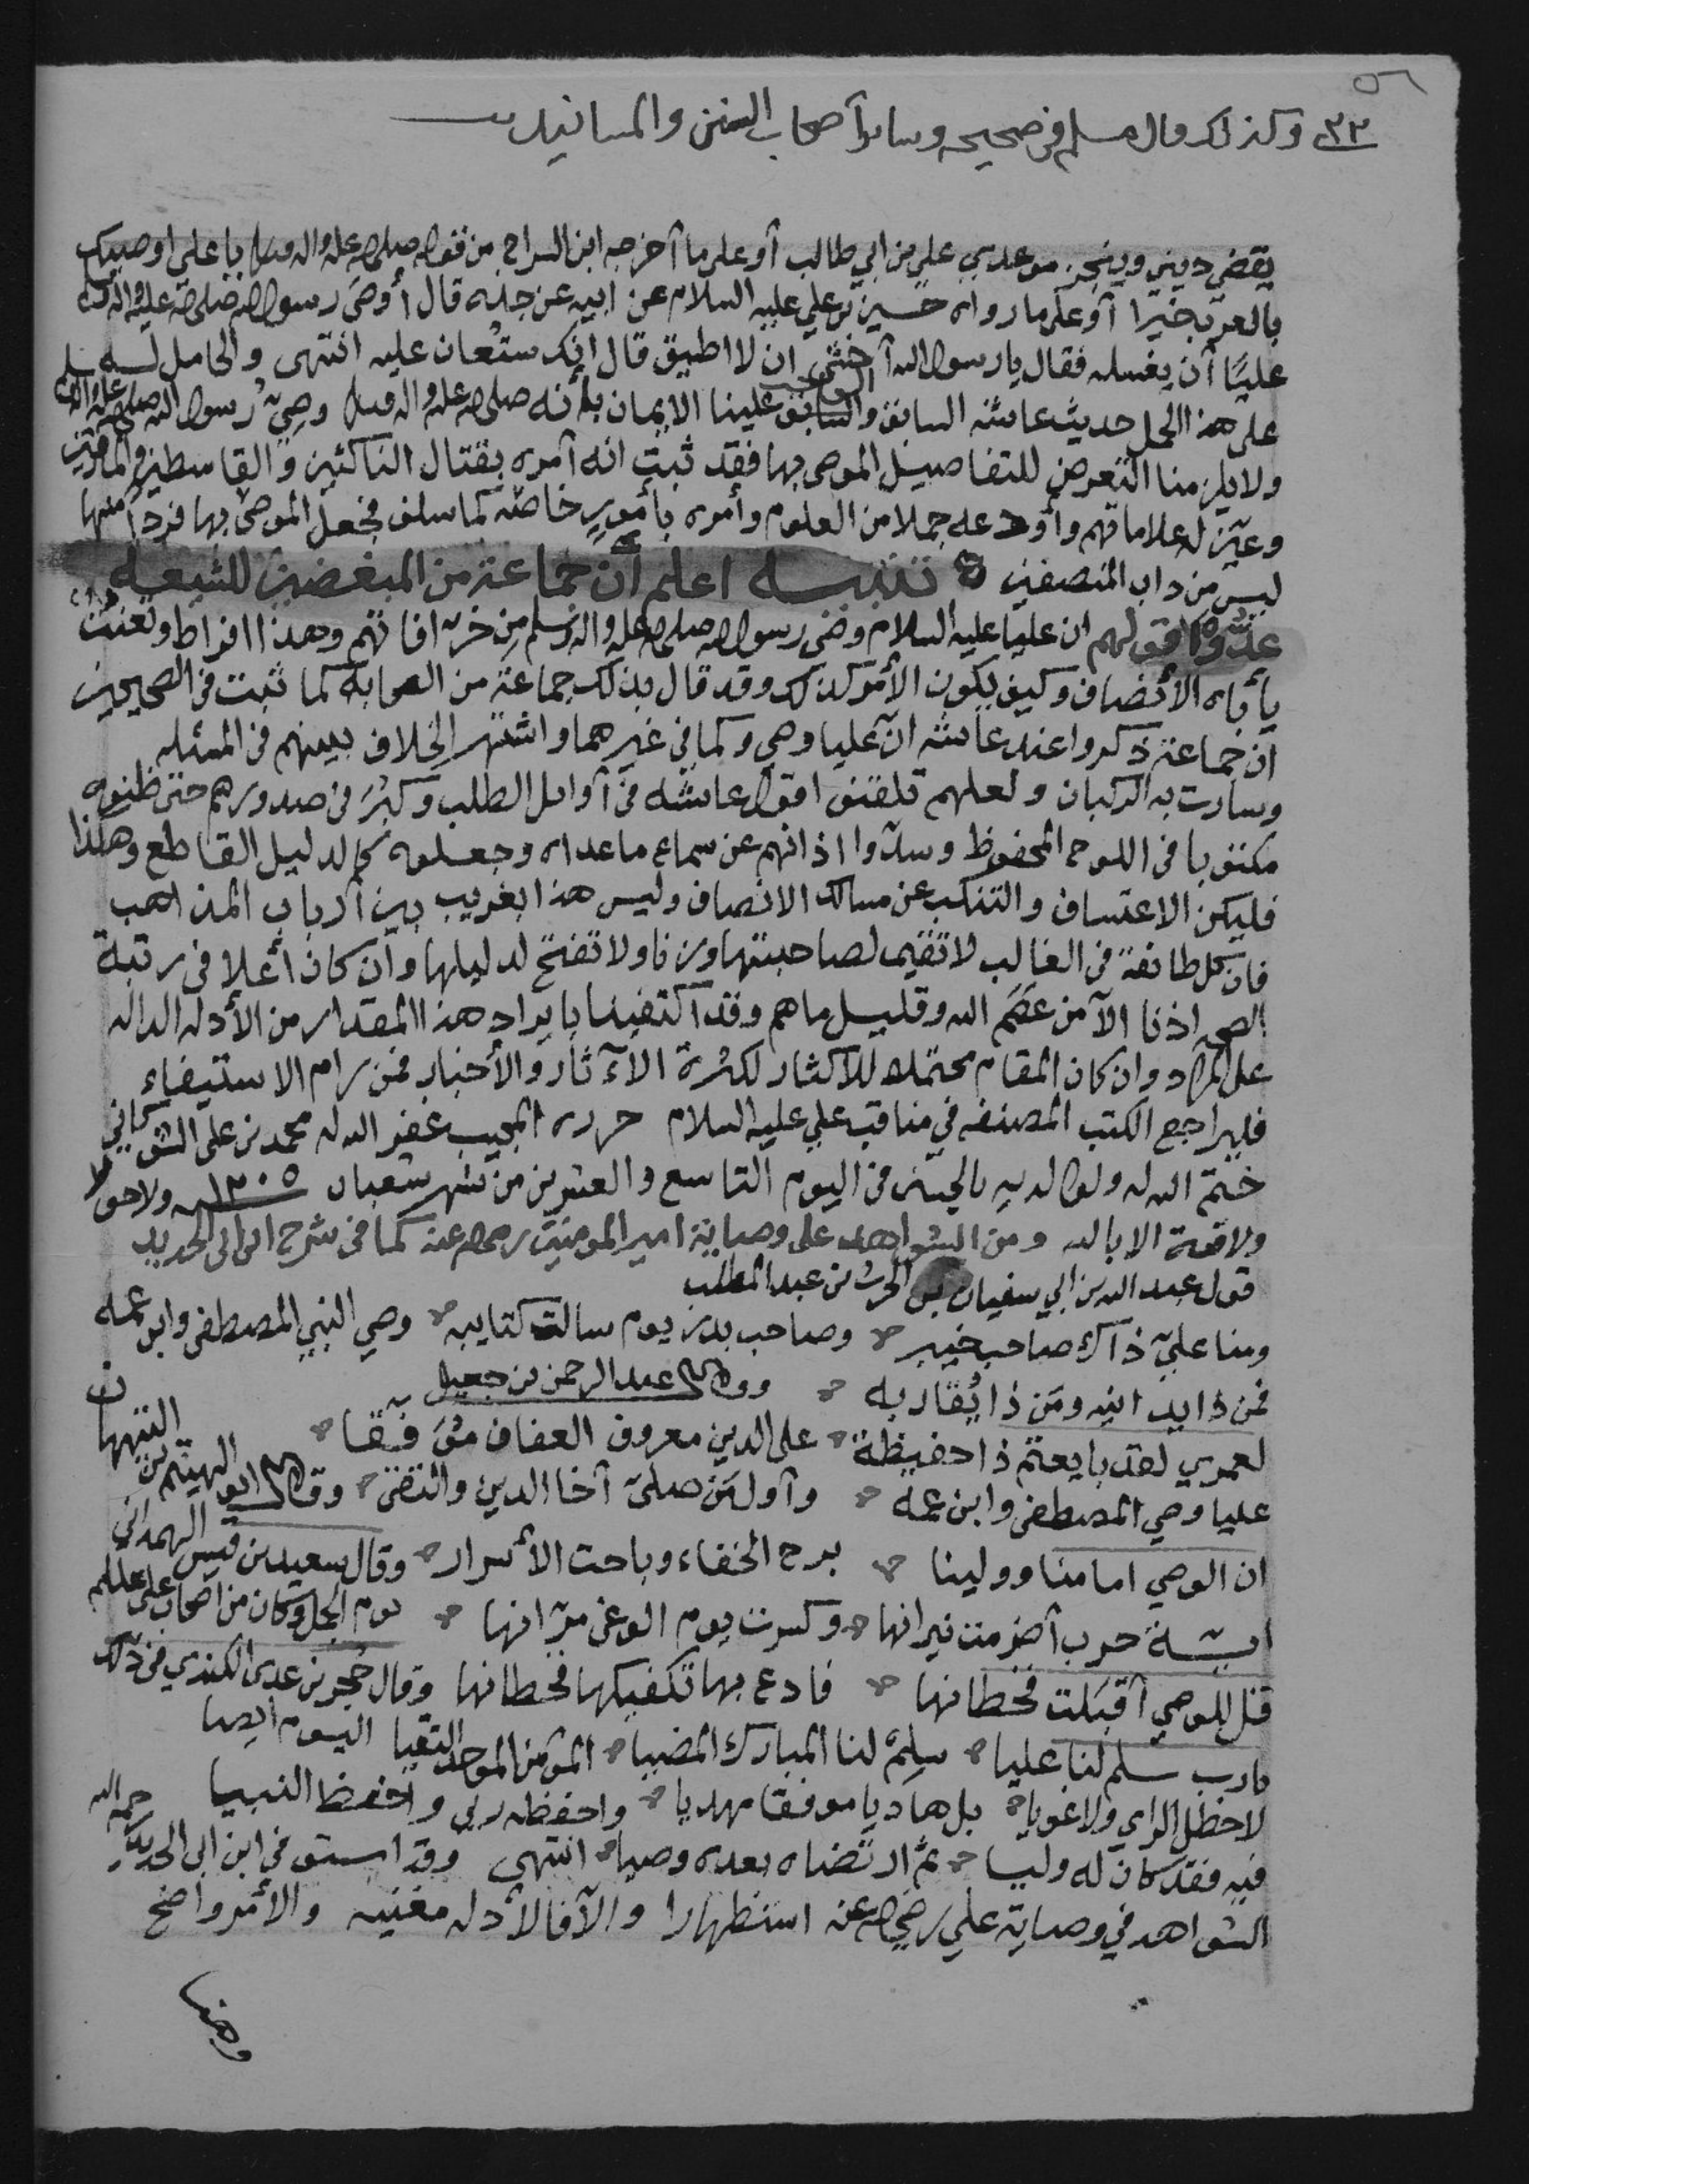 ٥٦
٣٣ وكذلك قال مسلم في صحيحه وسائر أصحاب السنن والمسانيد
يقضي ديني وينجز موعدي علي بن ابي طالب أو على ما أخرجه ابن السراج من قوله صلى الله عليه واله وسلم يا علي اوصيك
بالعرب خيرا أو على ما رواه حسين بن علي عليه السلام عن ابيه عن جده قال أوصى رسول الله صلى الله عليه واله وسلم
عليًا أن يغسله فقال يا رسول الله أخشى ان لا اطيق قال انك ستعان عليه انتهى والحامل له
على هذا الحمل حديث عائشه السابق والواجب علينا الايمان بأنه صلى الله عليه واله وسلم وصيّ رسول الله صلى الله عليه واله وسلم
ولا يلزمنا التعرض للتفاصيل الموصى بها فقد ثبت انه أمره بقتال الناكثين والقاسطين والمارقين
وعين له علاماتهم وأودعه جملا من العلوم وأمره بأمور خاصه كما سلف فجعل الموصى بها فردا منها
ليس من داب المنصفين تنبيه اعلم أن جماعة من المبغضين للشيعه
عدّوا قولهم ان عليا عليه السلام وصي رسول الله صلى الله عليه واله وسلم من خرافاتهم وهذا افراط وتعنت
يأباه الأنصاف وكيف يكون الأمر كذلك وقد قال بذلك جماعة من الصحابة كما ثبت في الصحيحين
ان جماعة ذكروا عند عائشه انّ عليا وصي وكما في غيرهما واشتهر الخلاف بينهم في المسئله
وسارت به الركبان ولعلهم تلقنوا قول عائشه في أوائل الطلب وكبر في صدورهم حتى ظنوه
مكتوبا في اللوح المحفوظ وسدّوا اذانهم عن سماع ما عداه وجعلوه كالدليل القاطع وهكذا
فليكن الاعتساف والتنكب عن مسالك الانصاف وليس هذا بغريب بين أرباب المذاهب
فان كل طائفة في الغالب لا تقيم لصاحبتها وزنا ولا تفتح لدليلها وان كان أعلا في رتبة
الصحه اذنا الا من عصم الله وقليل ما هم وقد اكتفينا بايراد هذا المقدار من الأدله الداله
على المراد وان كان المقام محتملا للاكثار لكثرة الآثار والأخبار فمن رام الاستيفاء
فليراجع الكتب المصنفه في مناقب علي عليه السلام حرره المجيب غفر الله له محمد بن علي الشوكاني
ختم الله له ولوالديه بالحسنى في اليوم التاسع والعشرين من شهر شعبان ١٢٠٥ ولا حول
ولا قوة الا بالله ومن الشواهد على وصاية امير المومنين رضي الله عنه كما في شرح ابن ابي الحديد
قول عبد الله بن ابي سفيان بن الحرث بن عبد المطلب
ومنا عليّ ذاك صاحب خيبر وصاحب بدر يوم سالت كتايبه وصي النبي المصطفى وابن عمه
فمن ذا يدانيه ومن ذا يقاربه وقال عبد الرحمن بن جعيل
لعمري لقد بايعتم ذا حفيظة على الدين معروف العفاف موفّقا
عليا وصي المصطفى وابن عمه وأول من صلى أخا الدين والتقى وقال ابو الهيثم بن التيهان
ان الوصي امامنا وولينا برح الخفاء وباحت الأسرار وقال سعيد بن قيس الهمداني
اية حرب أضرمت نيرانها وكسرت يوم الوغى مرّانها يوم الجمل وكان من اصحاب علي عليه السلام
قل للوصي أقبلت قحطانها فادع بها تكفيكها قحطانها وقال حجر بن عدي الكندي في ذلك
يا رب سلم لنا عليا سلم لنا المبارك المضيا المؤمن الموحد التقيا اليوم ايضا
لا خطل الراي ولا غويا بل هاديا موفقا مهديا واحفظه ربي واحفظ النبيا
فيه فقد كان له وليا ثم ارتضاه بعده وصيا انتهى وقد استوفى ابن ابي الحديد رحمه الله
الشواهد في وصاية علي رضي الله عنه استظهارا والا فالأدله مغنيه والأمر واضح